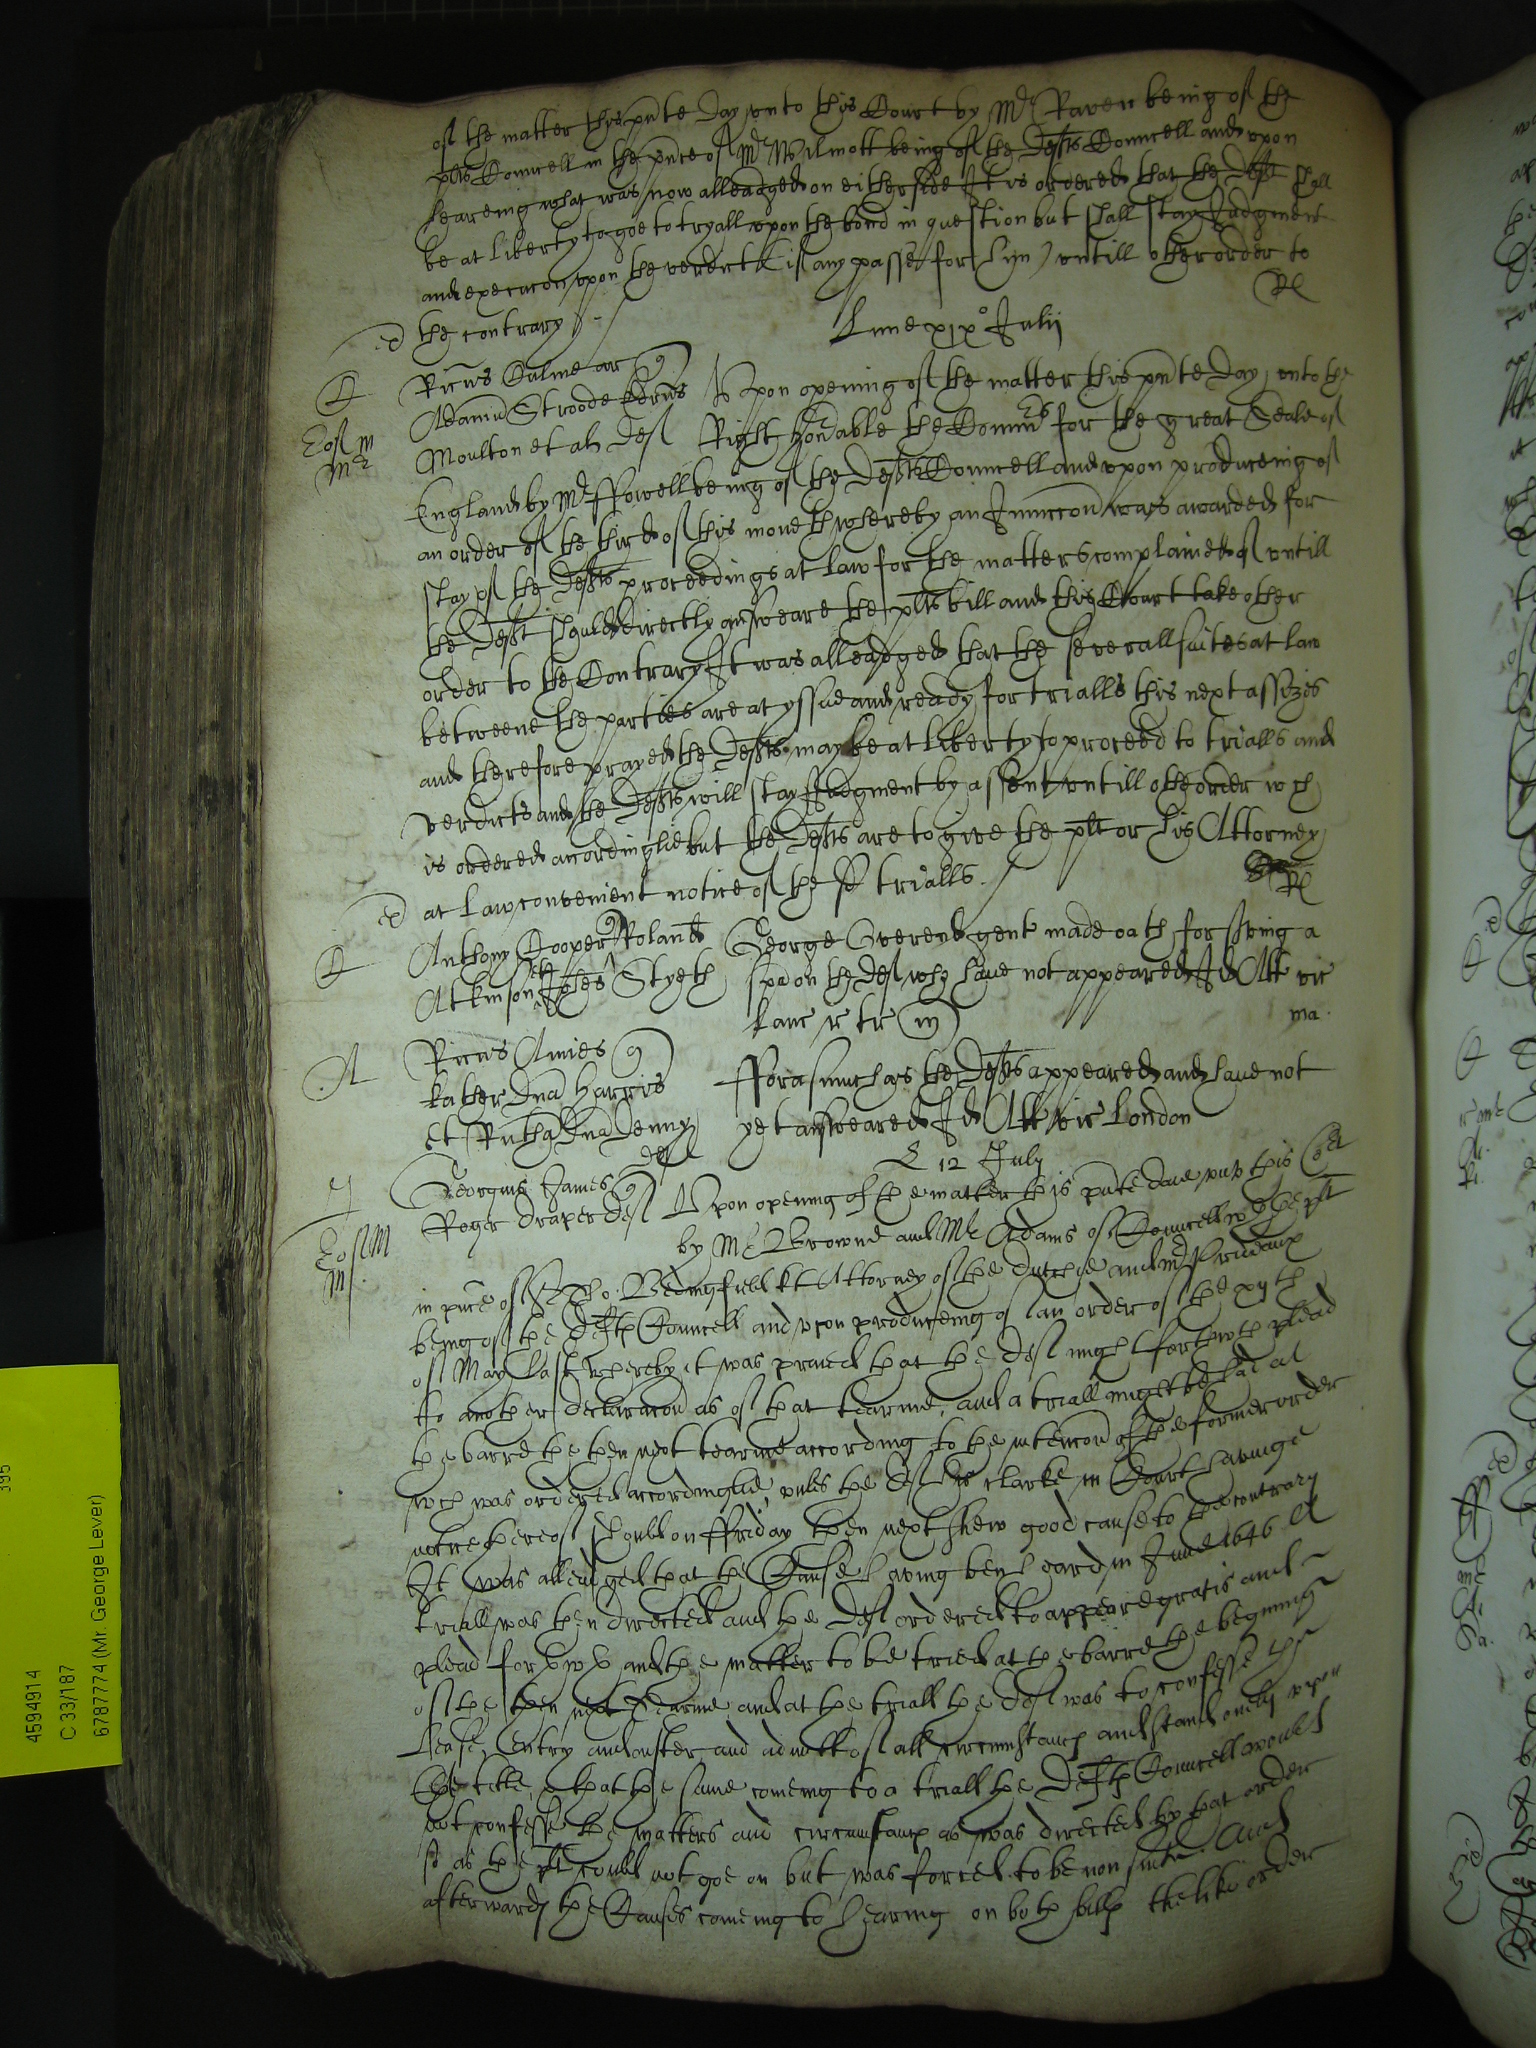 of the matter this pnte day unto this Court by Mr Raven being of the
plts Councell in the pnce of Mr Wilmott being of the Defts Councell and upon
heareing what was now alleadged on either side It is ordered that the Deft shall
be at liberty to goe to tryall upon the bond in question but shall stay Judgment
and execucon upon the verdict (if any passe for him) untill other order to
the contrary
Rl
Lune xix° Julij
Ricus Culme ar
Adamu Stroode
Moulton et al Def
Upon opening of the matter this pnte day unto the
Right honable the Comm for the great Seale of
England by Mr ffowell being of the Defts Councell and upon produceing of
an order of the third of this moneth whereby an Iniunccon was awarded for
stay of the Defts proceedings at law for the matters complained of untill
the Deft should directly answeare the plts bill and this Court take other
order to the Contrary It was alleadged that the severall suites at law
betweene the parties are at yssue and ready for trialls this next assizes
and therefore prayed the Defts may be at liberty to proceed to trialls and
verdicts and the Defts will stay Judgment by assent untill other order wch
is ordered accordinglie but the Defts are to give the plt or his Attorney
at law convenient notice of the sd trialls.
Rl
Anthony Cooper Roland
Atkinson Styeth
George Overend gent made oath for sving a
spa on the def who have not appeared Id Att vic
Lanc r tr (m)
ma.
A
Ricus Amies
Kather Dna Harris
et Rutha Dna Denny
def
fforasmuch as the Defts appeared and have not
yet answeared Id Att vic London
12 July
Georgius James
Roger Draper def
Upon opening of the matter this pnte daie unto this Cort
by Mr Browne and Mr Adams of Councell wth the plt
in pnce of Sr Tho: Bedingfeild kt Attorney of the dutchie and Mr Prideaux
being of the Defts Councell and upon produceing of an order of the xvth
of May last whereby it was praied that the def might forthwth plead
to another declaracon as of that tearme, and a triall might be had at
the barre the then next tearme according to the intencon of the former order
wch was ordered accordinglie, unles the def his clarke in Court haveinge
notice thereof should on ffriday then next shew good cause to the contrary
It was alleadged that the Cause having ben heard in June 1646 A
triall was then directed and the Def ordered to appeare gratis and
plead forthwth and the matter to be tried at the barre the beginning
of the then next Tearme and at the triall the def was to confesse the
Lease, Entry and ouster and admitt of all circumstances and stand onely upon
the title, that the same comeing to a triall the Defts Councell would
not confesse the matters and circumstances as was directed by that order
so as the plt could not goe on but was forced to be non suite. And
afterwards the Causes comeing to hearing on both bills the like order
4594914
C 33/187
6787774 (Mr. George Lever)
395